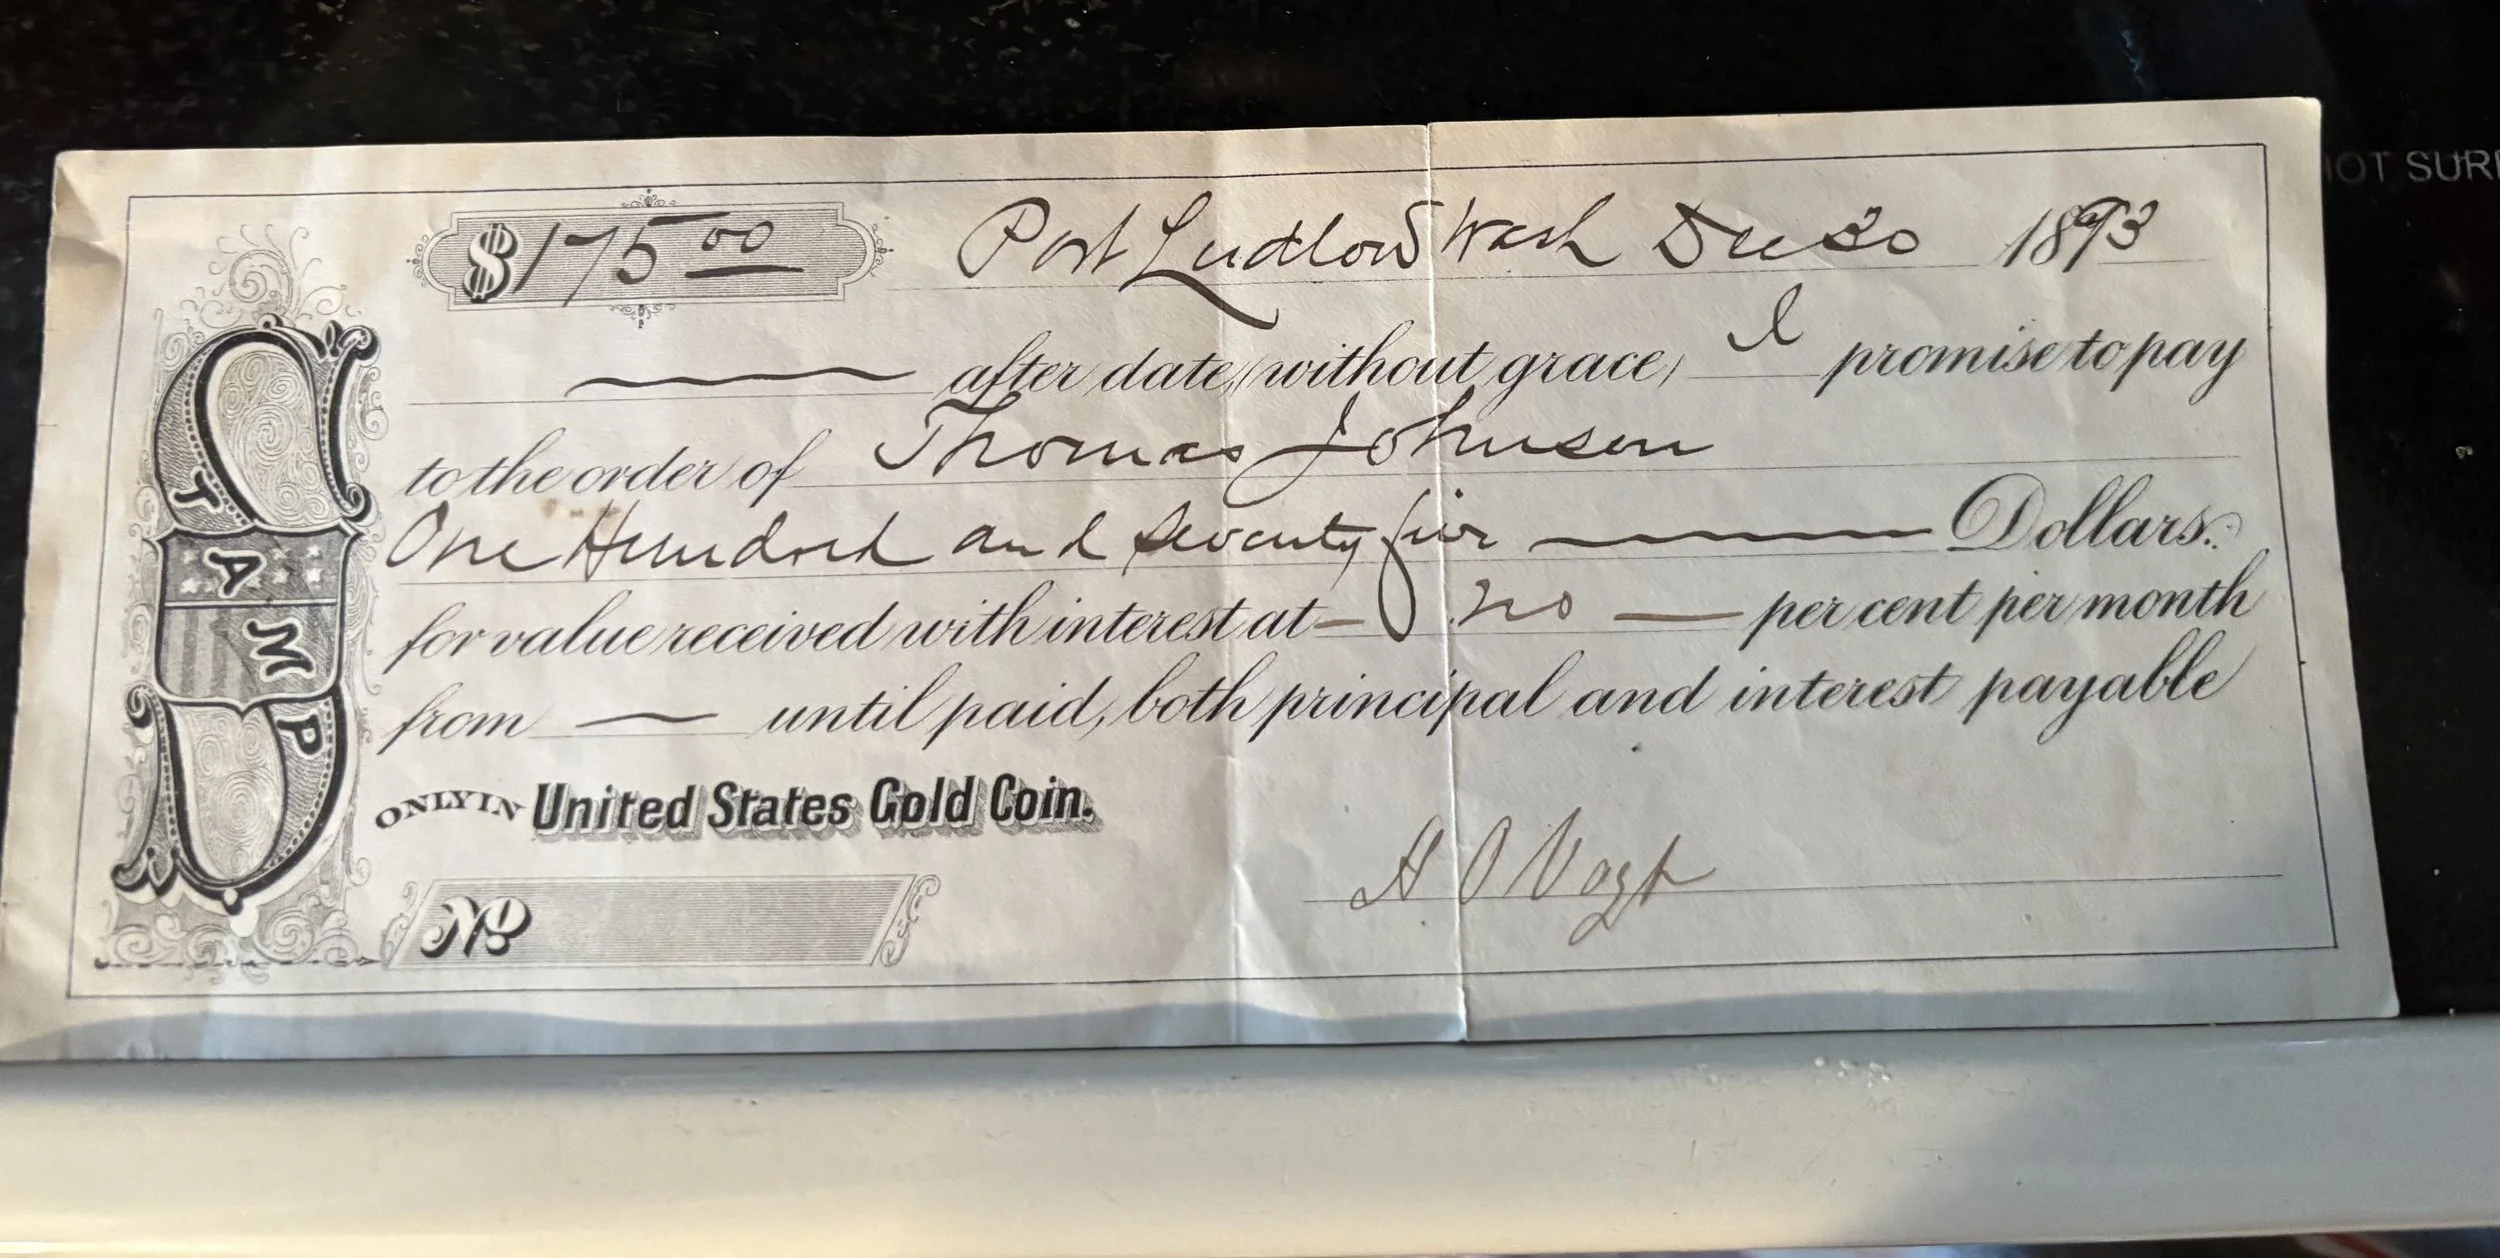 STAMP
$175 00 Port Ludlow Wash Dec 20 1893
after date, (without grace) I promise to pay
to the order of Thomas Johnson
One Hundred and Seventy five Dollars.
for value received with interest at no per cent per month
from until paid, both principal and interest payable
ONLY IN United States Gold Coin.
H O Vogt
No
HOT SUR